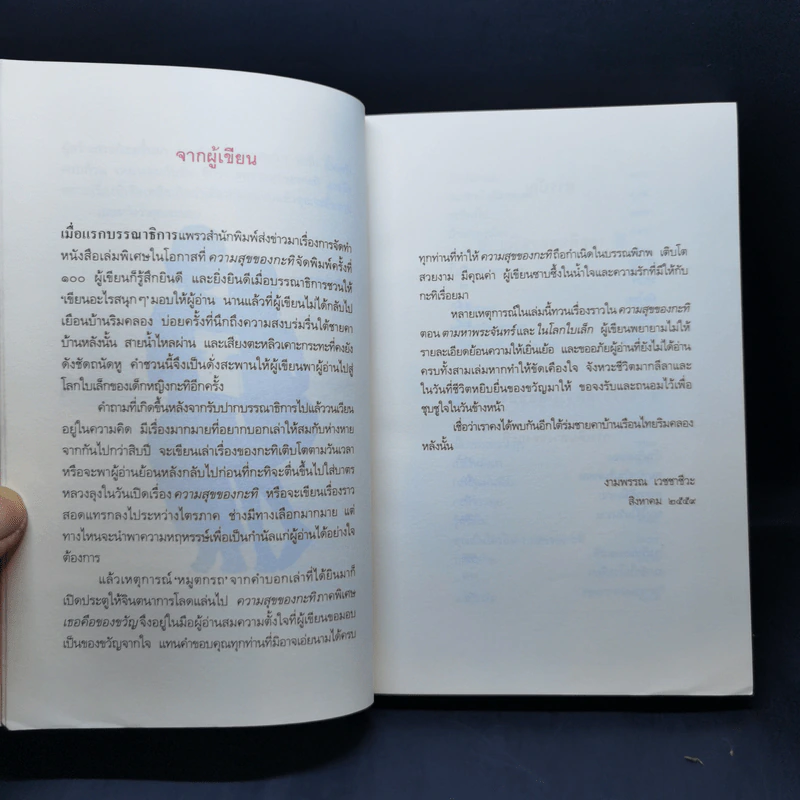 จากผู้เขียน
เมื่อแรกบรรณาธิการแพรวสำนักพิมพ์ส่งข่าวมาเรื่องการจัดทำ
หนังสือเล่มพิเศษในโอกาสที่ ความสุขของกะทิ จัดพิมพ์ครั้งที่
๑๐๐ ผู้เขียนก็รู้สึกยินดี และยิ่งยินดีเมื่อบรรณาธิการชวนให้
'เขียนอะไรสนุก ๆ' มอบให้ผู้อ่าน นานแล้วที่ผู้เขียนไม่ได้กลับไป
เยือนบ้านริมคลอง บ่อยครั้งที่นึกถึงความสงบร่มรื่นใต้ชายคา
บ้านหลังนั้น สายน้ำไหลผ่าน และเสียงตะหลิวเคาะกระทะที่คงยัง
ดังชัดถนัดหู คำชวนนี้จึงเป็นดั่งสะพานให้ผู้เขียนพาผู้อ่านไปสู่
โลกใบเล็กของเด็กหญิงกะทิอีกครั้ง
คำถามที่เกิดขึ้นหลังจากรับปากบรรณาธิการไปแล้ววนเวียน
อยู่ในความคิด มีเรื่องมากมายที่อยากบอกเล่าให้สมกับห่างหาย
จากกันไปกว่าสิบปี จะเขียนเล่าเรื่องของกะทิเติบโตตามวันเวลา
หรือจะพาผู้อ่านย้อนหลังกลับไปก่อนที่กะทิจะตื่นขึ้นไปใส่บาตร
หลวงลุงในวันเปิดเรื่อง ความสุขของกะทิ หรือจะเขียนเรื่องราว
สอดแทรกลงไประหว่างไตรภาค ช่างมีทางเลือกมากมาย แต่
ทางไหนจะนำพาความหฤหรรษ์เพื่อเป็นกำนัลแก่ผู้อ่านได้อย่างใจ
ต้องการ
แล้วเหตุการณ์ 'หมูตกรถ' จากคำบอกเล่าที่ได้ยินมาก็
เปิดประตูให้จินตนาการโลดแล่นไป ความสุขของกะทิ ภาคพิเศษ
เธอคือของขวัญ จึงอยู่ในมือผู้อ่านสมความตั้งใจที่ผู้เขียนขอมอบ
เป็นของขวัญจากใจ แทนคำขอบคุณทุกท่านที่มิอาจเอ่ยนามได้ครบ
ทุกท่านที่ทำให้ ความสุขของกะทิ ถือกำเนิดในบรรณพิภพ เติบโต
สวยงาม มีคุณค่า ผู้เขียนซาบซึ้งในน้ำใจและความรักที่มีให้กับ
กะทิเรื่อยมา
หลายเหตุการณ์ในเล่มนี้ทวนเรื่องราวใน ความสุขของกะทิ
ตอน ตามหาพระจันทร์ และ ในโลกใบเล็ก ผู้เขียนพยายามไม่ให้
รายละเอียดย้อนความให้เยิ่นเย้อ และขออภัยผู้อ่านที่ยังไม่ได้อ่าน
ครบทั้งสามเล่มหากทำให้ขัดเคืองใจ จังหวะชีวิตมากลีลาและ
ในวันที่ชีวิตหยิบยื่นของขวัญมาให้ ขอจงรับและถนอมไว้เพื่อ
ชุบชูใจในวันข้างหน้า
เชื่อว่าเราคงได้พบกันอีกใต้ร่มชายคาบ้านเรือนไทยริมคลอง
หลังนั้น
งามพรรณ เวชชาชีวะ
สิงหาคม ๒๕๕๙